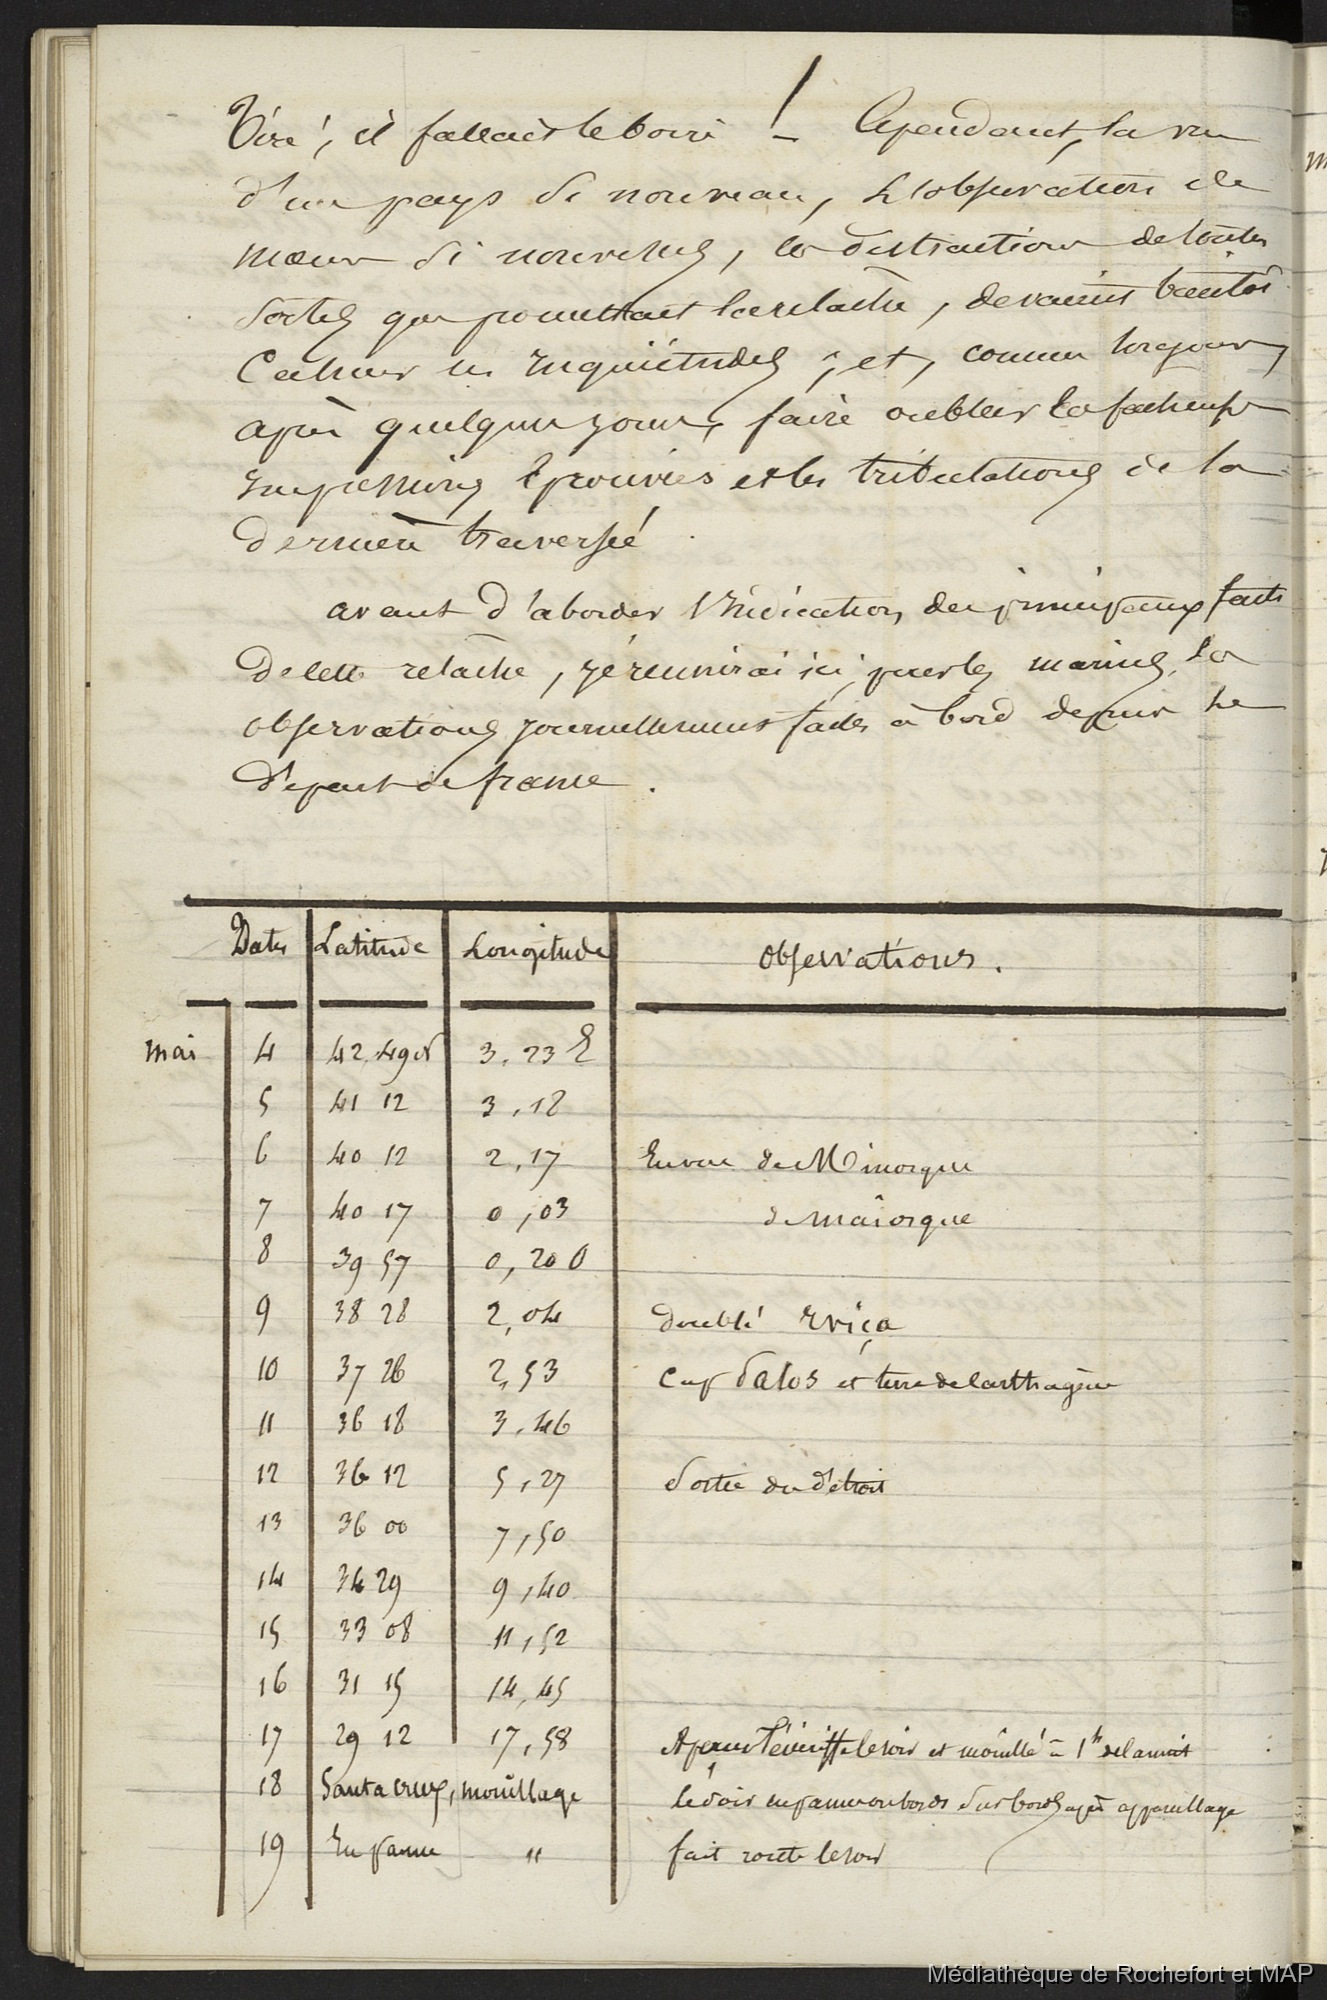 Tiré, il fallait le boire ! – Cependant, la vue
d'un pays si nouveau, l'observation de
mœurs si nouvelles, les distractions de toutes
sortes que promettait la relâche, devaient bientôt
calmer les inquiétudes ; et, comme toujours,
après quelques jours, faire oublier les fâcheuses
impressions éprouvées et les tribulations de la
dernière traversée.
avant d'aborder l'indication des principaux faits
de cette relâche, je réunirai ici, pour les marins, les
observations journellement faites à bord depuis le
départ de france.
Dates Latitude Longitude Observations.
mai 4 42,49 N 3,23 E
5 41 12 3,18
6 40 12 2,17 En vue de Minorque
7 40 17 0,03 de maïorque
8 39 57 0,20 O
9 38 28 2,04 doublé Iviça
10 37 26 2,53 Cap Palos et terre de Carthagène
11 36 18 3,46
12 36 12 5,27 Sortie du détroit
13 36 00 7,50
14 34 29 9,40
15 33 08 11,52
16 31 15 14,45
17 29 12 17,58 Aperçu Ténériffe le soir et mouillé à 1h de la nuit
18 Santa Cruz, mouillage le soir en panne ou bords sur bords après appareillage
19 En panne " fait route le soir
Médiathèque de Rochefort et MAP